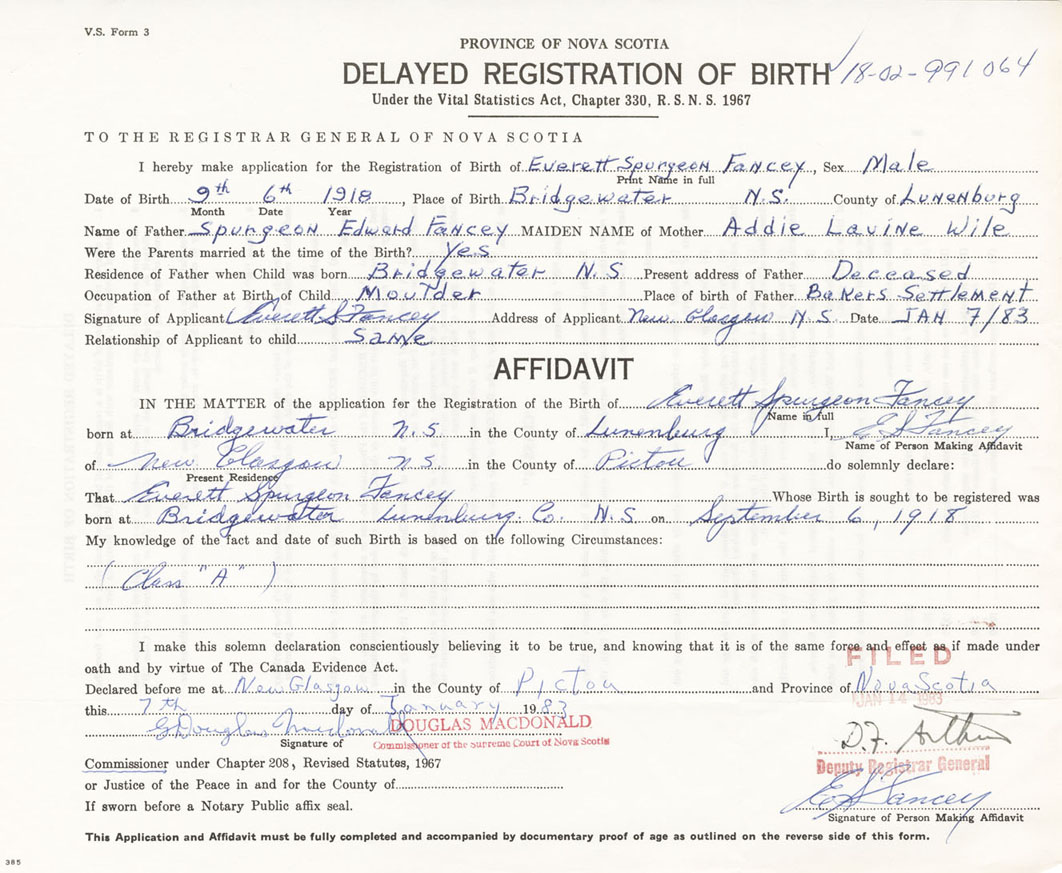 V.S. Form 3
PROVINCE OF NOVA SCOTIA
DELAYED REGISTRATION OF BIRTH 18-02-991064
Under the Vital Statistics Act, Chapter 330, R.S.N.S. 1967
TO THE REGISTRAR GENERAL OF NOVA SCOTIA
I hereby make application for the Registration of Birth of Everett Spurgeon Fancey, Sex Male
Print Name in full
Date of Birth 9th 6th 1918, Place of Birth Bridgewater N.S. County of Lunenburg
Month Date Year
Name of Father Spurgeon Edward Fancey MAIDEN NAME of Mother Addie Lavine Wile
Were the Parents married at the time of the Birth? Yes
Residence of Father when Child was born Bridgewater N.S Present address of Father Deceased
Occupation of Father at Birth of Child Moulder Place of birth of Father Bakers Settlement
Signature of Applicant Everett S Fancey Address of Applicant New Glasgow N.S. Date JAN 7/83
Relationship of Applicant to child Same
AFFIDAVIT
IN THE MATTER of the application for the Registration of the Birth of Everett Spurgeon Fancey
Name in full
born at Bridgewater N.S. in the County of Lunenburg I, E S Fancey
Name of Person Making Affidavit
of New Glasgow N.S. in the County of Pictou do solemnly declare:
Present Residence
That Everett Spurgeon Fancey Whose Birth is sought to be registered was
born at Bridgewater Lunenburg Co. N.S on September 6, 1918
My knowledge of the fact and date of such Birth is based on the following Circumstances:
(Class "A")
I make this solemn declaration conscientiously believing it to be true, and knowing that it is of the same force and effect as if made under
oath and by virtue of The Canada Evidence Act.
FILED
Declared before me at New Glasgow in the County of Pictou and Province of Nova Scotia
JAN 14 1983
this 7th day of January 1983
G Douglas Macdonald DOUGLAS MACDONALD
Signature of Commissioner of the Supreme Court of Nova Scotia
D.F. Arthur
Commissioner under Chapter 208, Revised Statutes, 1967
Deputy Registrar General
or Justice of the Peace in and for the County of
E S Fancey
If sworn before a Notary Public affix seal.
Signature of Person Making Affidavit
This Application and Affidavit must be fully completed and accompanied by documentary proof of age as outlined on the reverse side of this form.
385